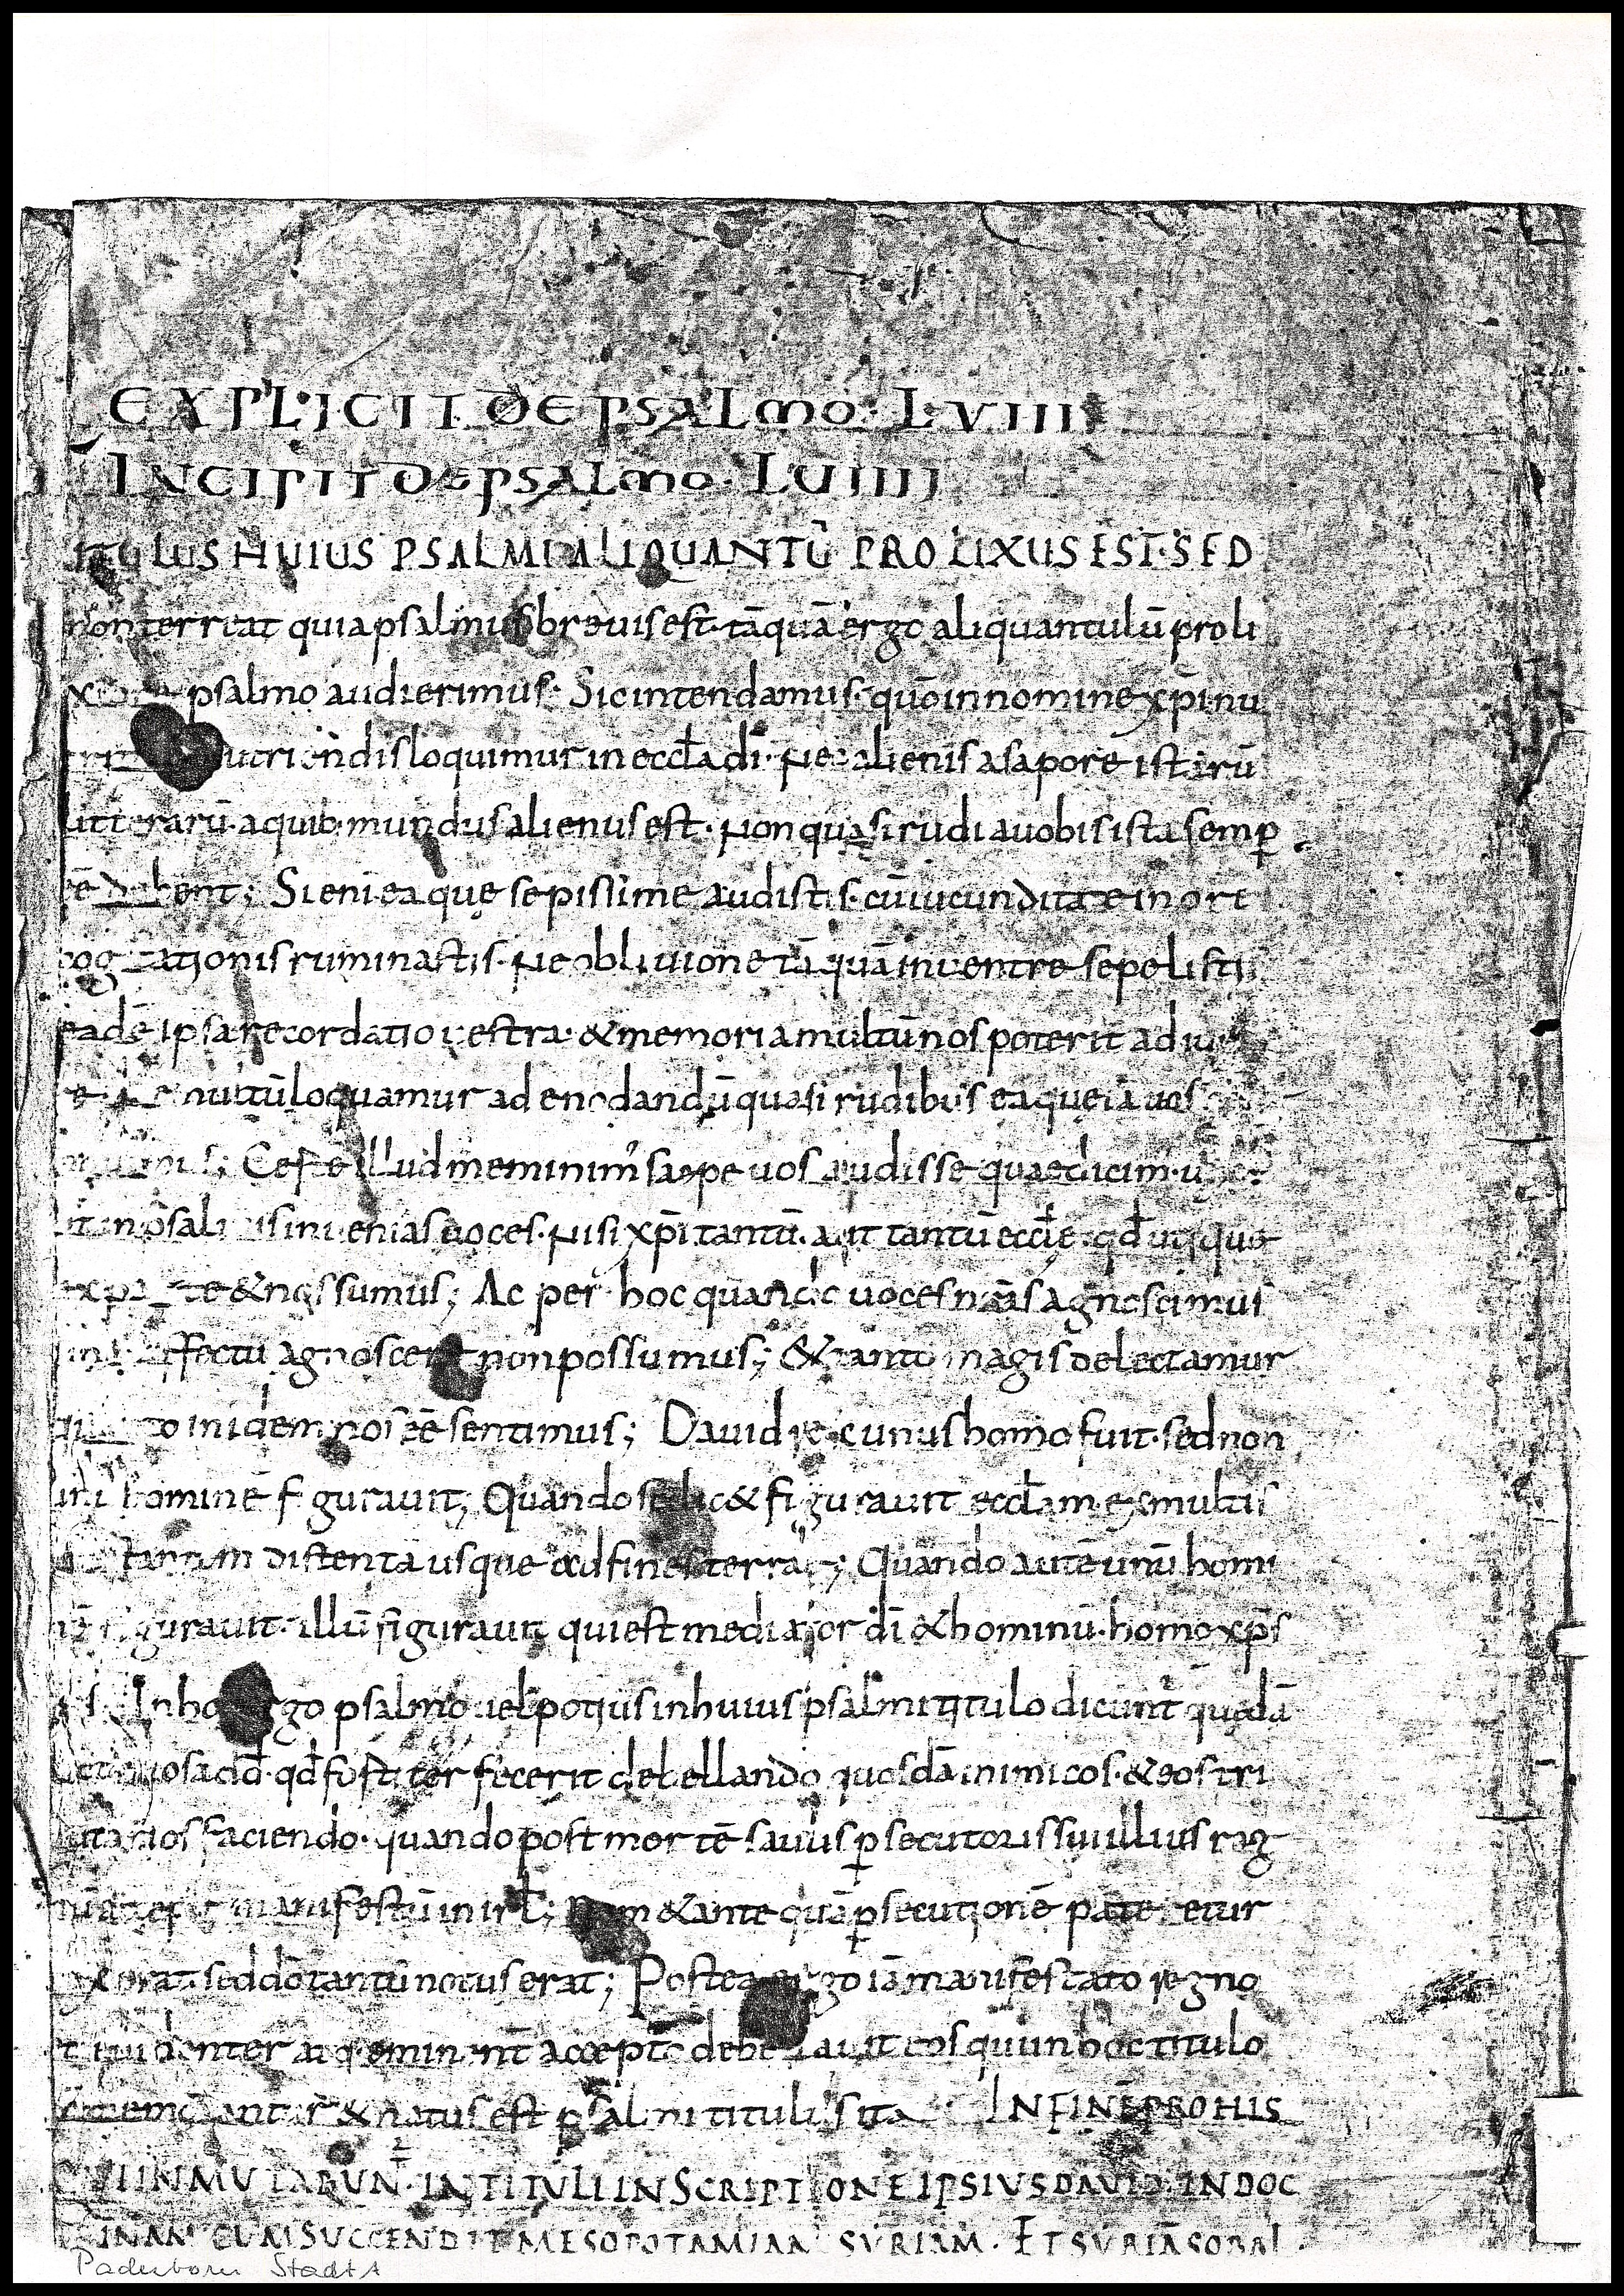 EXPLICIT DE PSALMO · LVIII
INCIPIT DE PSALMO · LUIIII
TITULUS HUIUS PSALMI ALIQUANTŪ PROLIXUS EST · SED
non terreat quia psalmus breuis est · tāquā ergo aliquantulū proli
psalmo audierimus · Sic intendamus · quō in nomine xp̄i nu
loquimur in eccƚa dī · Nec alienis a sapore istarū
litterarū · a quib · mundus alienus est · Non quasi rudi a uobis ista semp̱
ēē debent ; Si eni ea que sepissime audistis · cū iucunditate in ore
cogitationis ruminastis · Ne obliuione tāquā in uentre sepelisti
eadē ipsa recordatio uestra · & memoria multū nos poterit adiu
multū loquamur ad enodandū quasi rudibus ea que iā uos
illud meminim' saepe uos audisse quae dicim·
in psalmis inuenias uoces · Nisi xp̄i tantū · aut tantū eccƚe · qđ utique
ex parte & nos sumus ; Ac per hoc quando uoces nr̄as agnoscimus
affectu agnoscere non possumus ; & tanto magis delectamur
quanto in idem nos ēē sentimus ; Dauid rex unus homo fuit · sed non
unū hominē figurauit ; Quando scilic& figurauit eccƚam ex multis
distenta usque ad fines terrae ; Quando autē unū homi
nē figurauit · illū figurauit qui est mediator dī & hominū · homo xp̄s
In hoc ergo psalmo uel potius in huius psalmi titulo dicunt' quedā
qđ fortiter fecerit debellando quosdā inimicos · & eos tri
butarios faciendo · quando post mortē saulis p̱secutoris sui illius reg
nū accepit manifestū in irƚ ; Nam & ante quā p̱secutionē pateretur
rex erat sed dō tantū notus erat ; Postea ergo iā manifestato regno
euidenter atq· eminent̄ accepto debellauit eos qui in hoc titulo
& natus est psalmi titulus ita INFINĒ PRO HIS
QUI INMUTABUNT · IN TITULI INSCRIPTIONE IPSIUS DAVID · IN DOC
TRINAM CUM SUCCENDIT MESOPOTAMIAM SYRIAM · ET SYRIĀ SOBAL
Paderborn StadtA